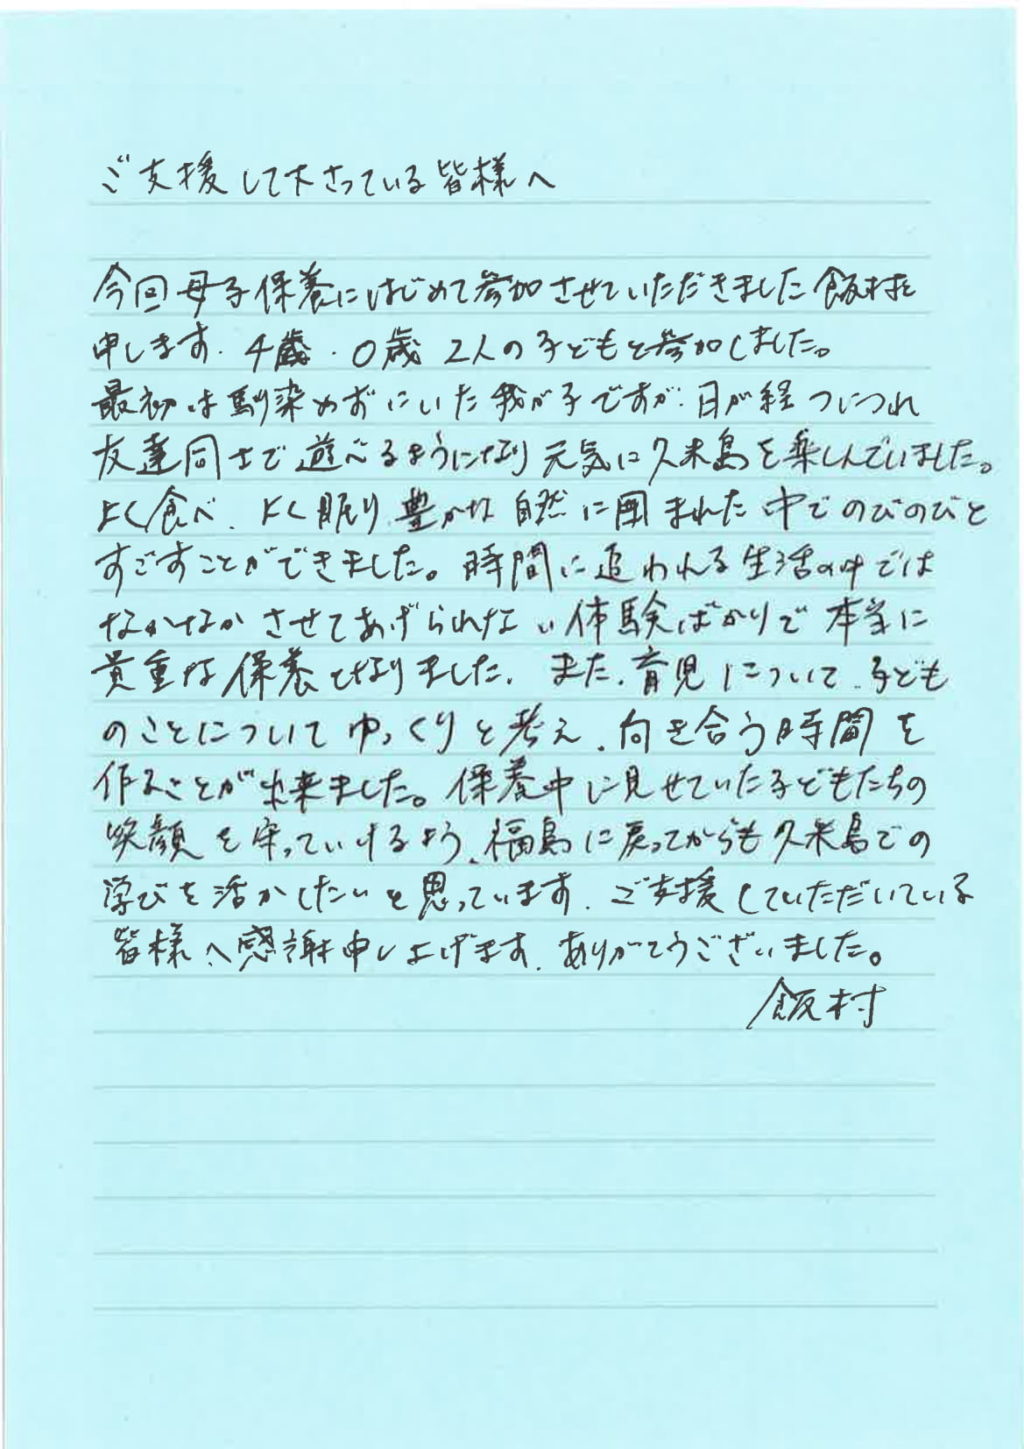 ご支援して下さっている皆様へ
今回母子保養にはじめて参加させていただきました飯村と
申します。4歳、0歳 2人の子どもと参加しました。
最初は馴染めずにいた我が子ですが、日が経つにつれ
友達同士で遊べるようになり元気に久米島を楽しんでいました。
よく食べ、よく眠り、豊かな自然に囲まれた中でのびのびと
すごすことができました。時間に追われる生活の中では
なかなかさせてあげられない体験ばかりで本当に
貴重な保養となりました。また、育児について、子ども
のことについてゆっくりと考え、向き合う時間を
作ることが出来ました。保養中に見せていた子どもたちの
笑顔を守っていけるよう、福島に戻ってからも久米島での
学びを活かしたいと思っています。ご支援していただいている
皆様へ感謝申し上げます。ありがとうございました。
飯村